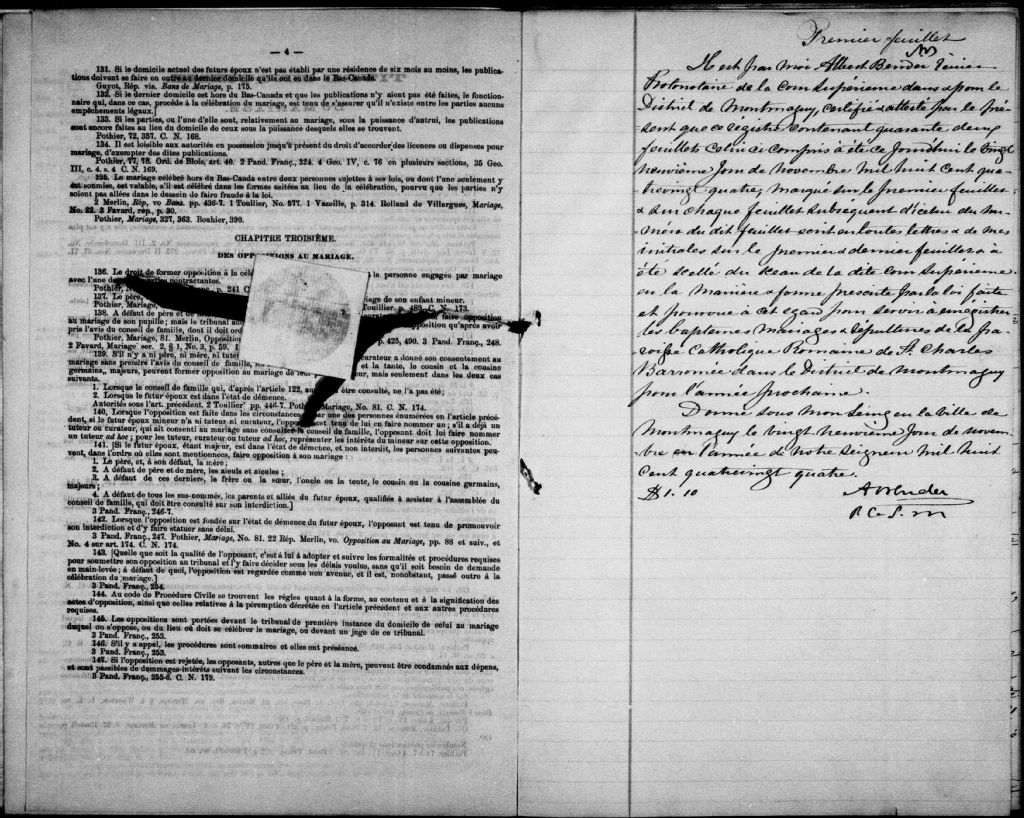 — 4 —
131. Si le domicile actuel des futurs époux n'est pas établi par une résidence de six mois au moins, les publica-
tions doivent se faire en outre au dernier domicile qu'ils ont eu dans le Bas-Canada.
Guyot, Rép. vis. Bans de Mariage, p. 175.
132. Si le dernier domicile est hors du Bas-Canada et que les publications n'y aient pas été faites, le fonction-
naire qui, dans ce cas, procède à la célébration du mariage, est tenu de s'assurer qu'il n'existe entre les parties aucuns
empêchements légaux.]
133. Si les parties, ou l'une d'elle sont, relativement au mariage, sous la puissance d'autrui, les publications
sont encore faites au lieu du domicile de ceux sous la puissance desquels elles se trouvent.
Pothier, 72, 357. C. N. 168.
134. Il est loisible aux autorités en possession jusqu'à présent du droit d'accorder des licences ou dispenses pour
mariage, d'exempter des dites publications.
Pothier, 77, 78. Ord. de Blois, art. 40. 2 Pand. Franç., 324. 4 Geo. IV, c. 76 en plusieurs sections, 35 Geo.
III, c. 4. s. 4 C. N. 169.
135. Le mariage célébré hors du Bas-Canada entre deux personnes sujettes à ses lois, ou dont l'une seulement y
est soumise, est valable, s'il est célébré dans les formes usitées au lieu de la célébration, pourvu que les parties n'y
soient pas allées dans le dessein de faire fraude à la loi.
2 Merlin, Rép, vo Bans. pp. 436-7. 1 Toullier, No. 577. 1 Vazeille, p. 314. Rolland de Villargues, Mariage,
No. 22. 3 Favard, rép., p. 30.
Pothier, Mariage, 327, 363. Bouhier, 390.
CHAPITRE TROISIÈME.
DES OPPOSITIONS AU MARIAGE.
136. Le droit de former opposition à la cél la personne engagée par mariage
avec l'une des contractantes.
Pothier, p. 241 C
137. Le père, iage de son enfant mineur.
Pothier, Mariage, Toullier. p. 489. C. N. 173.
138. A défaut de père et de faire opposition
au mariage de son pupille; mais le tribunal au opposition qu'après avoir
pris l'avis du conseil de famille, dont il doit or
Pothier, Mariage, 81. Merlin, Opposition p. 425, 490. 3 Pand. Franç., 248.
2 Favard, Mariage sec. 2, § 1, No. 3, p. 59.
139. S'il n'y a ni père, ni mère, ni tuteur curateur a donné son consentement au
mariage sans prendre l'avis du conseil de famille, et la tante, le cousin et la cousine
germains, majeurs, peuvent former opposition au mariage de leur mais seulement dans les deux cas
suivants.
1. Lorsque le conseil de famille qui, d'après l'article 122, aurait dû être consulté, ne l'a pas été;
2. Lorsque le futur époux est dans l'état de démence.
Autorités sous l'art. précédent. 2 Toullier pp. 446-7. Pothier, Mariage, No. 81. C. N. 174.
140, Lorsque l'opposition est faite dans les circonstances par une des personnes énumérées en l'article précé-
dent, si le futur époux mineur n'a ni tuteur ni curateur, l'opposant est tenu de lui en faire nommer un; s'il a déjà un
tuteur ou curateur, qui ait consenti au mariage sans consulter le conseil de famille, l'opposant doit lui faire nommer
un tuteur ad hoc; pour les tuteur, curateur ou tuteur ad hoc, représenter les intérêts du mineur sur cette opposition.
141. [Si le futur époux, étant majeur, est dans l'état de démence, et non interdit, les personnes suivantes peu-
vent, dans l'ordre où elles sont mentionnées, faire opposition à son mariage:
1. Le père, et, à son défaut, la mère;
2. A défaut de père et de mère, les aïeuls et aïeules;
3. A défaut de ces derniers, le frère ou la sœur, l'oncle ou la tante, le cousin ou la cousine germains,
majeurs;
4. A défaut de tous les sus-nommés, les parents et alliés du futur époux, qualifiés à assister à l'assemblée du
conseil de famille, qui doit être consulté sur son interdiction.]
3 Pand. Franç., 246-7.
142. Lorsque l'opposition est fondée sur l'état de démence du futur époux, l'opposant est tenu de promouvoir
son interdiction et d'y faire statuer sans délai.
3 Pand. Franç., 247. Pothier, Mariage, No. 81. 22 Rép. Merlin, vo. Opposition au Mariage, pp. 88 et suiv., et
No. 4 sur art. 174. C. N. 174.
143. [Quelle que soit la qualité de l'opposant, c'est à lui à adopter et suivre les formalités et procédures requises
pour soumettre son opposition au tribunal et l'y faire décider sous les délais voulus, sans qu'il soit besoin de demande
en main-levée; à défaut de quoi, l'opposition est regardée comme non avenue, et il est, nonobstant, passé outre à la
célébration du mariage.]
3 Pand. Franç., 254.
144. Au code de Procédure Civile se trouvent les règles quant à la forme, au contenu et à la signification des
actes d'opposition, ainsi que celles relatives à la péremption décrétée en l'article précédent et aux autres procédures
requises.
145. Les oppositions sont portées devant le tribunal de première instance du domicile de celui au mariage
duquel on s'oppose, ou du lieu où doit se célébrer le mariage, ou devant un juge de ce tribunal.
3 Pand. Franç., 253.
146. S'il y a appel, les procédures sont sommaires et elles ont préséance.
3 Pand. Franç., 253.
147. Si l'opposition est rejetée, les opposants, autres que le père et la mère, peuvent être condamnés aux dépens,
et sont passibles de dommages-intérêts suivant les circonstances.
3 Pand. Franç., 255-6. C. N. 179.
Premier feuillet
Il est par moi Albert Bender Ecuier
Protonotaire de la Cour Supérieure dans & pour le
District de Montmagny, certifié & attesté par le pré-
sent que ce régistre contenant quarante deux
feuillets celui ci compris a été ce jourd'hui le vingt
neuvième jour de novembre mil huit cent qua-
trevingt quatre, marqué sur le premier feuillet
& sur chaque feuillet subséquent d'icelui du nu-
méro du dit feuillet écrit en toutes lettres & de mes
initiales sur le premier & dernier feuillets & a
été scellé du sceau de la dite Cour Supérieure
en la manière & forme prescrite par la loi faite
et pourvue à cet égard pour servir à enrégistrer
les baptêmes mariages & sépultures de la pa-
roisse Catholique Romaine de St. Charles
Barromée dans le District de Montmagny
pour l'année prochaine.
Donné sous mon seing en la ville de
Montmagny le vingt neuvième jour de novem-
bre en l'année de notre seigneur mil huit
cent quatrevingt quatre.
$1. 10
A Bender
P. C. S. M